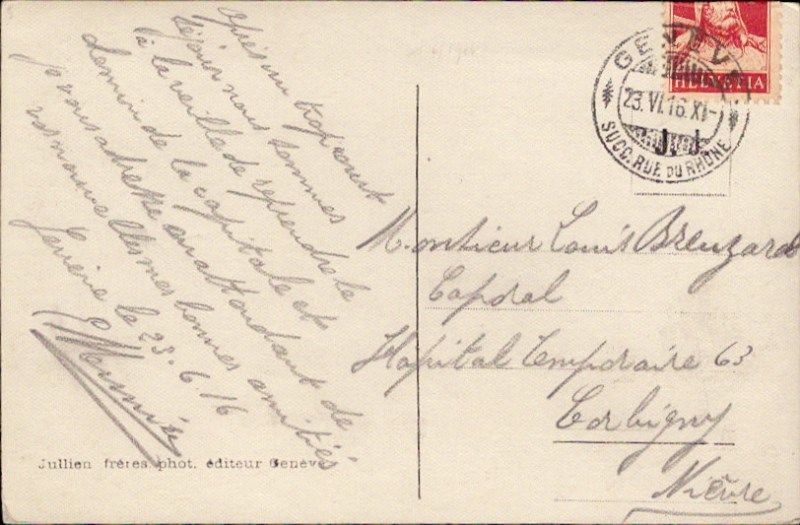 après un trop court
séjour nous sommes
à la veille de reprendre le
chemin de la capitale et
je vous adresse en attendant de
vos nouvelles mes bonnes amitiés
Genève le 23.6.16
Jullien frères phot. éditeur Genève
GENÈVE
23.VI.16.XI-
SUCC. RUE DU RHÔNE
HELVETIA
Monsieur Louis Breuzard
Caporal
Hôpital Temporaire 63
Corbigny
Nièvre